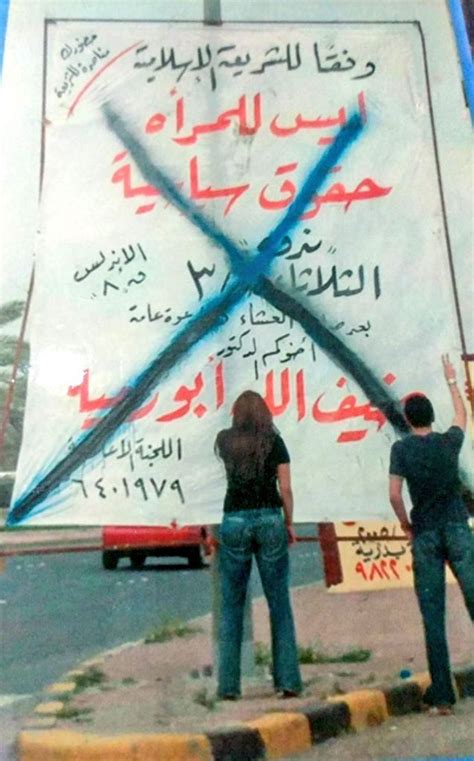 حضورك
مناصرة للشريعة
وفقاً للشريعة الإسلامية
ليس للمرأه
حقوق سياسية
"ندوة"
الثلاثاء
الاندلس
بعد صلاة العشاء دعوة عامة
أخوكم الدكتور
ضيف الله أبورمية
اللجنة الاعلامية
٦٤٠١٩٧٩
بدرية
٩٨٢٢٠